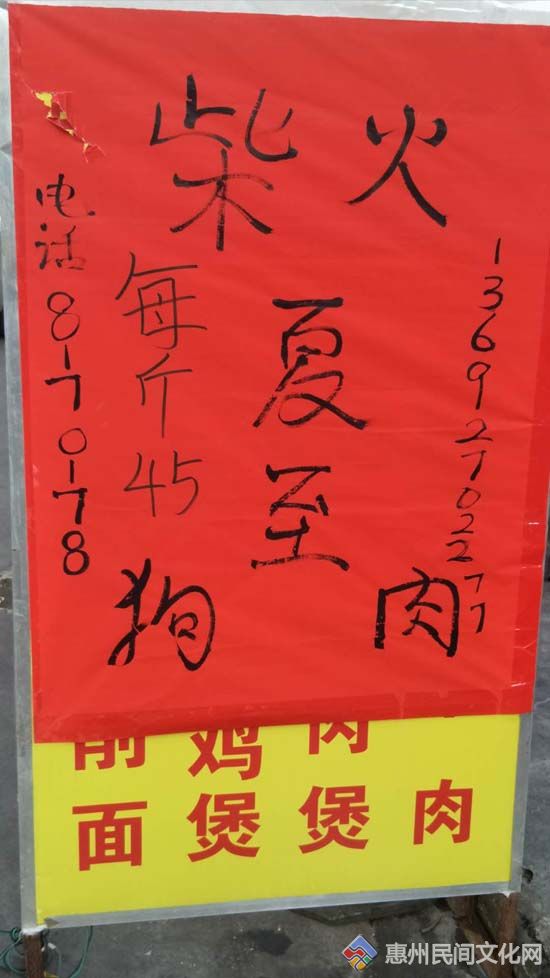 柴火
夏至
狗肉
每斤45
电话8170178
13692702277
前鸡肉
面煲煲肉
惠州民间文化网